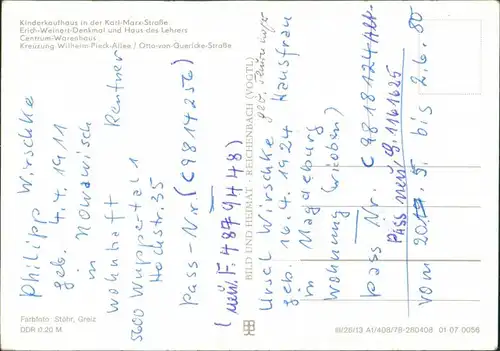 Kinderkaufhaus in der Karl-Marx-Straße
Erich-Weinert-Denkmal und Haus des Lehrers
Centrum-Warenhaus
Kreuzung Wilhelm-Pieck-Allee / Otto-von-Guericke-Straße
Philipp Wirschke
geb. 4.4.1911
in Nowawisch
wohnhaft Rentner
5600 Wuppertal 1
Hochstr. 35
Pass-Nr. (C9814256)
(neu: F. 4879448)
BILD UND HEIMAT · REICHENBACH (VOGTL)
Ursel Wirschke geb.
geb. 16.4.1924 Hausfrau
in Magdeburg
Wohnung (wie oben)
Pass Nr. C 9818124 Alt-
Pass neu, G. 1161625
vom 20. 5. bis 2.6.80
Farbfoto: Stöhr, Greiz
DDR 0,20 M
III/26/13 At/408/78-280408 01 07 0056